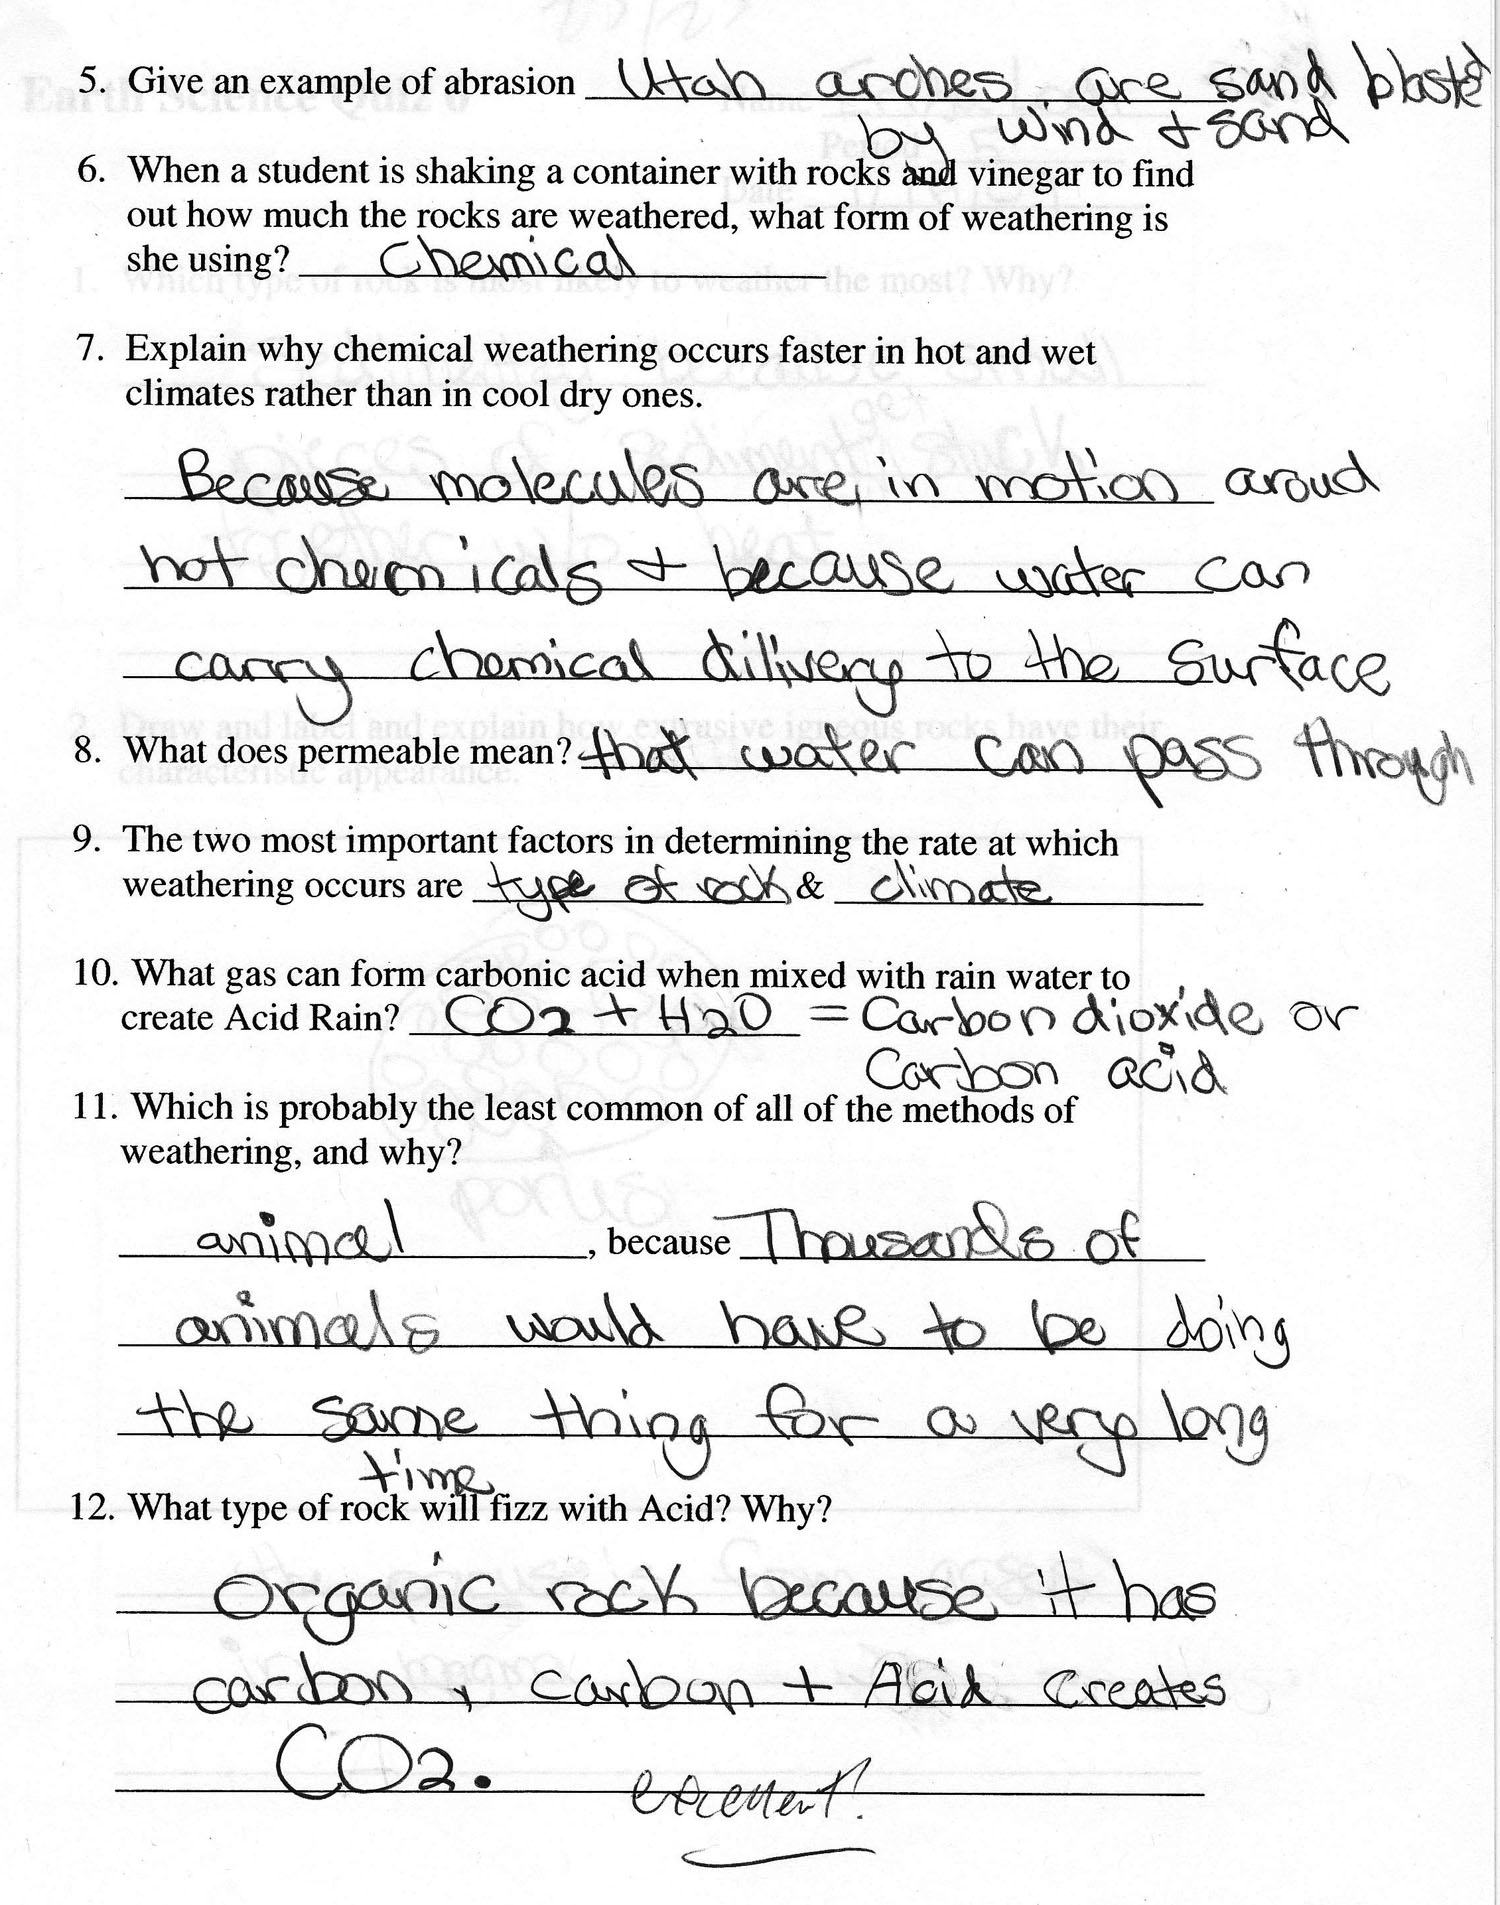 5. Give an example of abrasion Utah arches are sand blasted
by wind + sand
6. When a student is shaking a container with rocks and vinegar to find
out how much the rocks are weathered, what form of weathering is
she using? Chemical
7. Explain why chemical weathering occurs faster in hot and wet
climates rather than in cool dry ones.
Because molecules are in motion aroud
hot chemicals + because water can
carry chemical dilivery to the surface
8. What does permeable mean? that water can pass through
9. The two most important factors in determining the rate at which
weathering occurs are type of rock & climate
10. What gas can form carbonic acid when mixed with rain water to
create Acid Rain? CO2 + H2O = Carbon dioxide or
Carbon acid
11. Which is probably the least common of all of the methods of
weathering, and why?
animal, because Thousands of
animals would have to be doing
the same thing for a very long
time
12. What type of rock will fizz with Acid? Why?
Organic rock because it has
carbon, carbon + Acid creates
CO2. excellent!